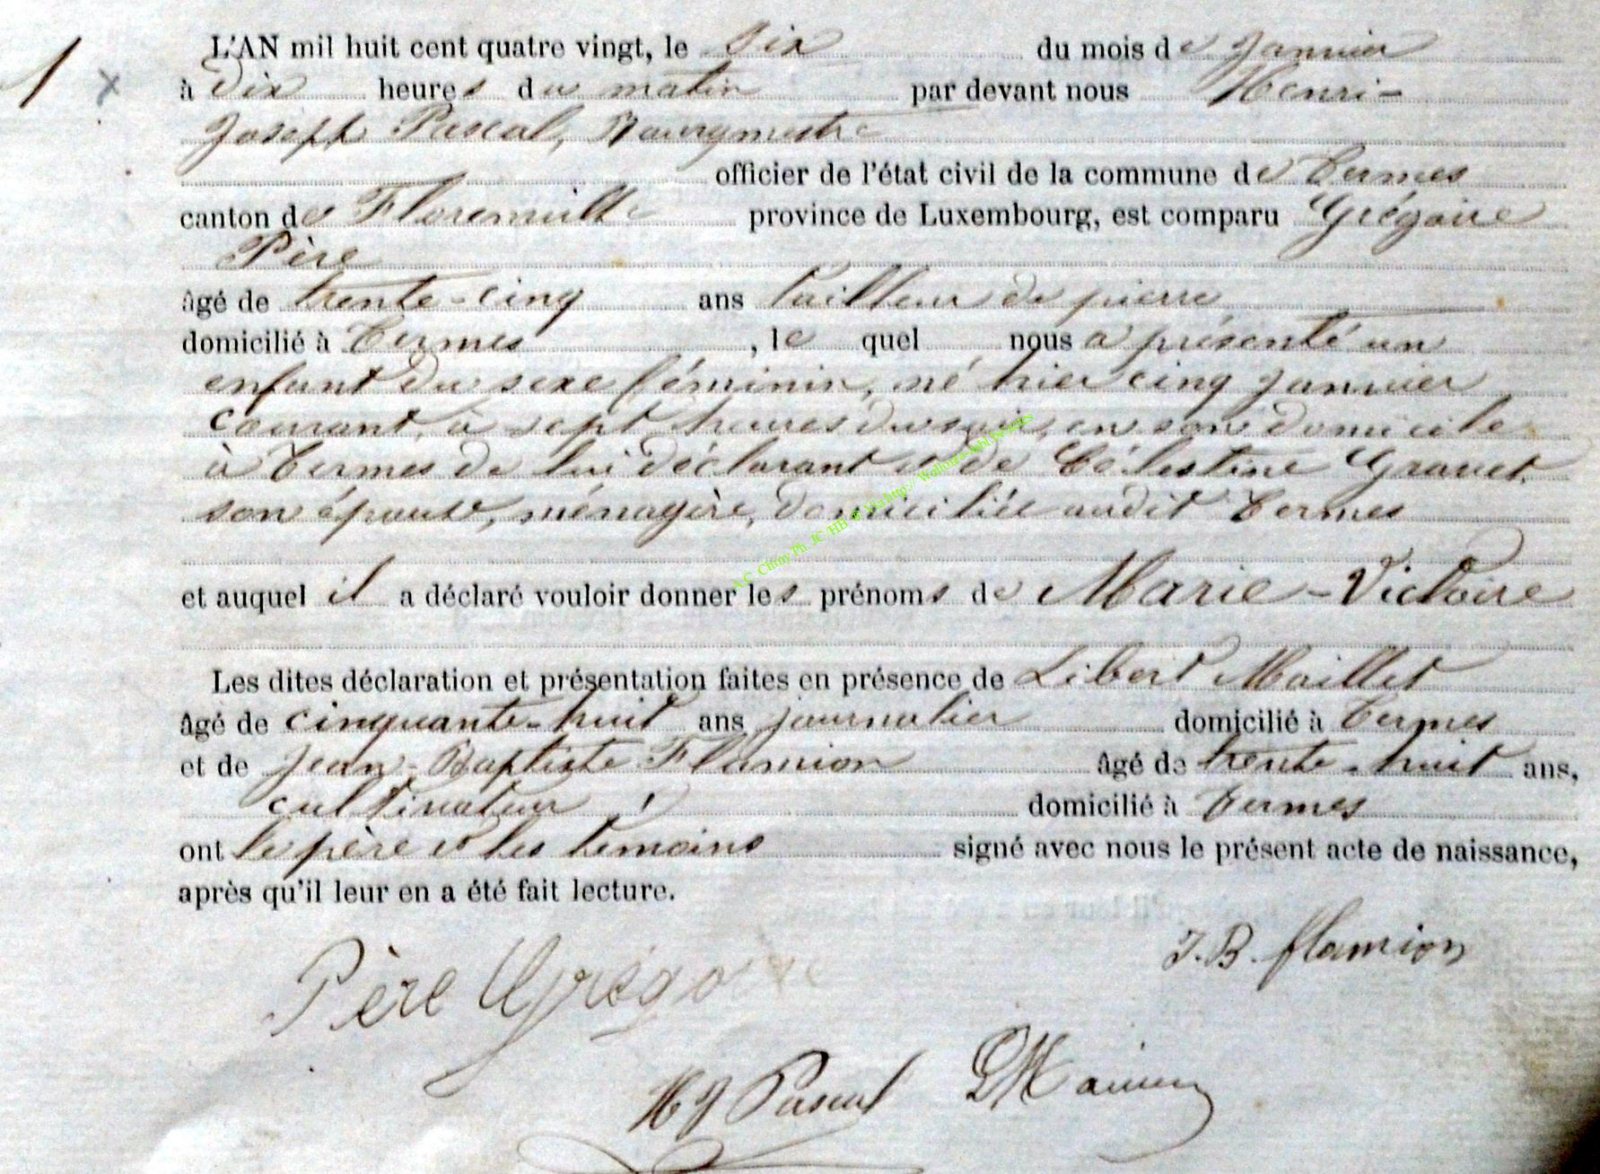 1 x
L'AN mil huit cent quatre vingt, le six du mois de Janvier
à dix heures du matin par devant nous Henri-
Joseph Pascal, Bourgmestre
officier de l'état civil de la commune de Termes
canton de Florenville province de Luxembourg, est comparu Grégoire
Père
âgé de trente-cinq ans tailleur de pierre
domicilié à Termes, le quel nous a présenté un
enfant du sexe féminin, né hier cinq Janvier
courant, à sept heures du soir, en son domicile
à Termes de lui déclarant et de Célestine Gravet,
son épouse, ménagère, domiciliée audit Termes
et auquel il a déclaré vouloir donner les prénoms de Marie-Victoire
Les dites déclaration et présentation faites en présence de Libert Maillet
âgé de cinquante-huit ans journalier domicilié à Termes
et de Jean-Baptiste Flamion âgé de trente-huit ans,
cultivateur domicilié à Termes
ont le père et les témoins signé avec nous le présent acte de naissance,
après qu'il leur en a été fait lecture.
J. B. flamion
Père Grégoire
HJ Pascal